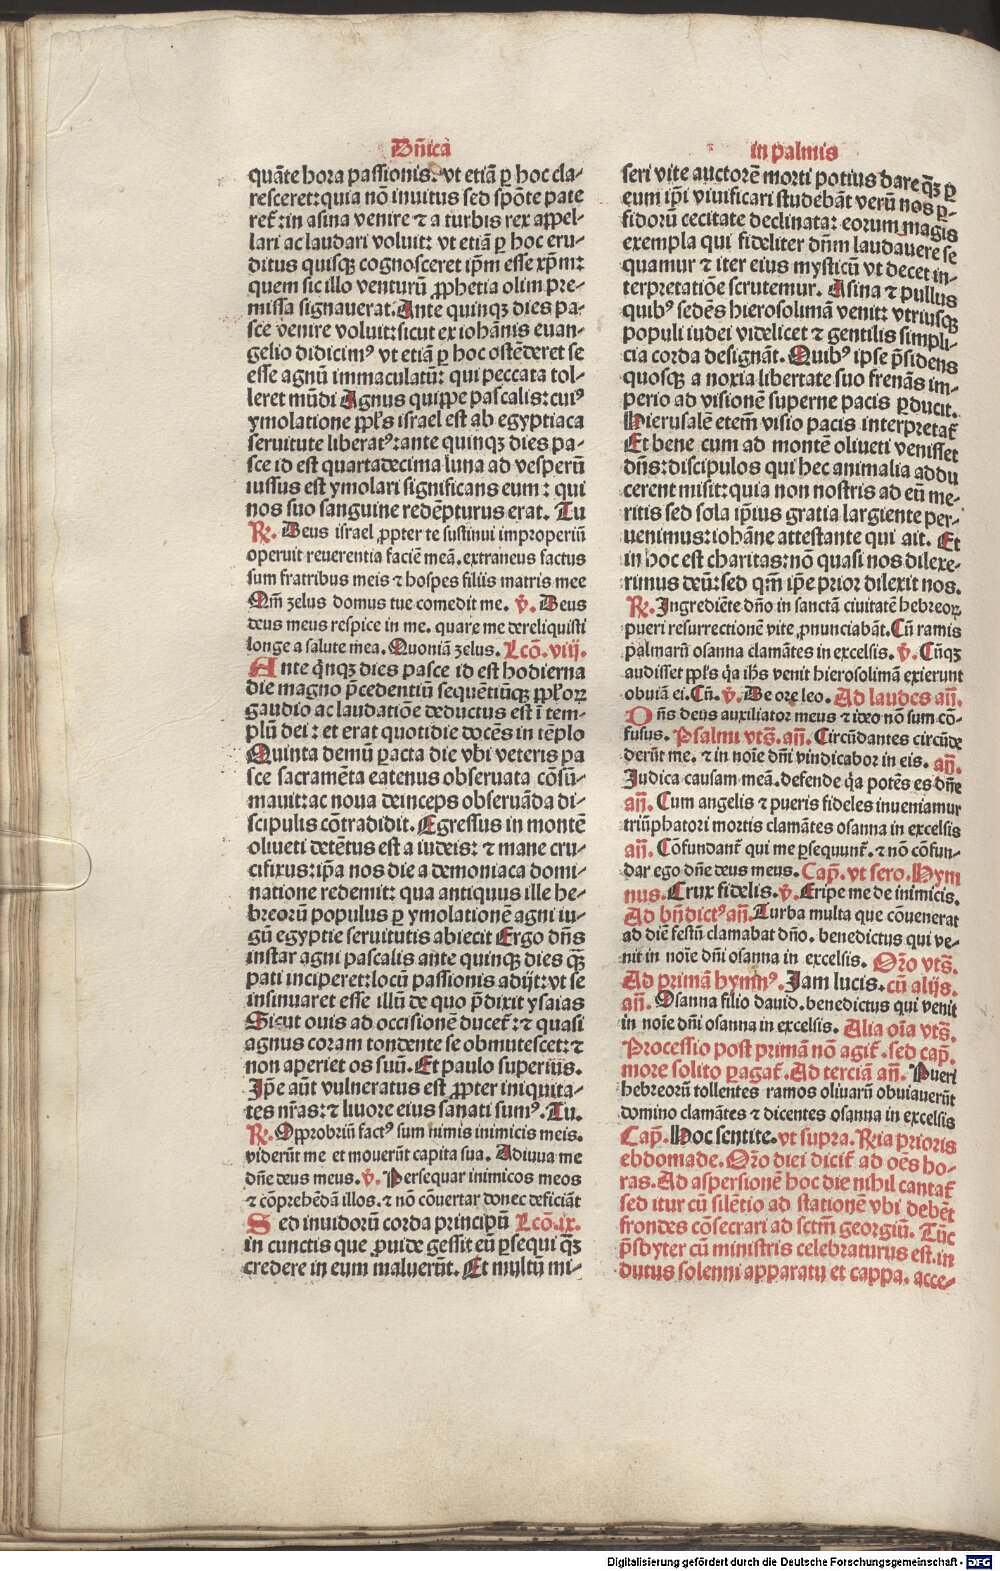 Dñica
quãte hora passionis. vt etiã ꝑ hoc cla-
resceret: quia nõ inuitus sed spõte pate
ret̃: in asina venire ⁊ a turbis rex appel-
lari ac laudari voluit: vt etiã ꝑ hoc eru-
ditus quisqꝫ cognosceret ip̃m esse xp̃m:
quem sic illo venturũ ꝓphetia olim pre-
missa signauerat. Ante quinqꝫ dies pa-
sce venire voluit: sicut ex iohãnis euan-
gelio didicimꝰ vt etiã ꝑ hoc ostẽderet se
esse agnũ immaculatũ: qui peccata tol-
leret mũdi Agnus quippe pascalis: cuiꝰ
ymolatione ppl̃s israel est ab egyptiaca
seruitute liberatꝰ: ante quinqꝫ dies pa-
sce id est quartadecima luna ad vesperũ
iussus est ymolari significans eum: qui
nos suo sanguine redẽpturus erat. Tu
℟. Deus israel ꝓpter te sustinui improperiũ
operuit reuerentia faciẽ meã. extraneus factus
sum fratribus meis ⁊ hospes filiis matris mee
Qm̃ zelus domus tue comedit me. ℣. Deus
deus meus respice in me. quare me dereliquisti
longe a salute mea. Quoniã zelus. Lcõ. viij.
Ante q̃nqꝫ dies pasce id est hodierna
die magno p̃cedentiũ sequẽtiũqꝫ ppl̃oꝝ
gaudio ac laudatiõe deductus est ĩ tem-
plũ dei: et erat quotidie docẽs in tẽplo
Quinta demũ ꝑacta die vbi veteris pa
sce sacramẽta eatenus obseruata cõsũ-
mauit: ac noua deinceps obseruãda di-
scipulis cõtradidit. Egressus in montẽ
oliueti detẽtus est a iudeis: ⁊ mane cru-
cifixus: ip̃a nos die a demoniaca domi-
natione redemit: qua antiquus ille he-
breorũ populus ꝑ ymolationẽ agni iu-
gũ egyptie seruitutis abiecit Ergo dñs
instar agni pascalis ante quinqꝫ dies q̃ꝫ
pati inciperet: locũ passionis adijt: vt se
insinuaret esse illũ de quo p̃dixit ysaias
Sicut ouis ad occisionẽ ducet̃: ⁊ quasi
agnus coram tondente se obmutescet: ⁊
non aperiet os suũ. Et paulo superiũs.
Ip̃e aũt vulneratus est ꝓpter iniquita-
tes nr̃as: ⁊ liuore eius sanati sumꝰ. Tu.
℟. Opprobriũ factꝰ sum nimis inimicis meis.
viderũt me et mouerũt capita sua. Adiuua me
dñe deus meus. ℣. Persequar inimicos meos
⁊ cõprehẽdã illos. ⁊ nõ cõuertar donec deficiãt
Sed inuidorũ corda principũ Lcõ. ix.
in cunctis que ꝓuide gessit eũ ꝑsequi q̃ꝫ
credere in eum maluerũt. Et multũ mi-
in palmis
seri vite auctorẽ morti potius dare q̃ꝫ ꝑ
eum ip̃i viuificari studebãt verũ nos ꝑ-
fidorũ cecitate declinata: eorum magis
exempla qui fideliter dñm laudauere se
quamur ⁊ iter eius mysticũ vt decet in-
terpretatiõe scrutemur. Asina ⁊ pullus
quibꝰ sedẽs hierosolimã venit: vtriusqꝫ
populi iudei videlicet ⁊ gentilis simpli-
cia corda designãt. Quibꝰ ipse p̃sidens
quosqꝫ a noxia libertate suo frenãs im-
perio ad visionẽ superne pacis ꝑducit.
Hierusalẽ etem̃ visio pacis interpretat̃
Et bene cum ad montẽ oliueti venisset
dñs: discipulos qui hec animalia addu
cerent misit: quia non nostris ad eũ me-
ritis sed sola ip̃ius gratia largiente per-
uenimus: iohãne attestante qui ait. Et
in hoc est charitas: nõ quasi nos dilexe-
rimus deũ: sed qm̃ ip̃e prior dilexit nos.
℟. Ingrediẽte dño in sanctã ciuitatẽ hebreoꝝ
pueri resurrectionẽ vite ꝓnunciabãt. Cũ ramis
palmarũ osanna clamãtes in excelsis. ℣. Cũqꝫ
audisset ppl̃s q̃a ih̃s venit hierosolimã exierunt
obuiã ei. Cũ. ℣. De ore leo. Ad laudes añ.
Dñs deus auxiliator meus ⁊ ideo nõ sum cõ-
fusus. Psalmi vts̃. añ. Circũdantes circũde
derũt me. ⁊ in noĩe dñi vindicabor in eis. añ.
Judica causam meã. defende q̃a potẽs es dñe
añ. Cum angelis ⁊ pueris fideles inueniamur
triũphatori mortis clamãtes osanna in excelsis
añ. Cõfundant̃ qui me ꝑsequunt̃. ⁊ nõ cõfun-
dar ego dñe deus meus. Cap̃. vt sero. Hym
nus. Crux fidelis. ℣. Eripe me de inimicis.
Ad bñdictꝰ añ. Turba multa que cõuenerat
ad diẽ festũ clamabat dño. benedictus qui ve-
nit in noĩe dñi osanna in excelsis. Oro vts̃.
Ad primã hymnꝰ. Jam lucis. cũ alijs.
añ. Osanna filio dauid. benedictus qui venit
in noĩe dñi osanna in excelsis. Alia oĩa vts̃.
Processio post primã nõ agit̃. sed cap̃.
more solito ꝑagat̃. Ad terciã añ. Pueri
hebreorũ tollentes ramos oliuarũ obuiauerũt
domino clamãtes ⁊ dicentes osanna in excelsis
Cap̃. Hoc sentite. vt supra. R̃ia prioris
ebdomade. Oro diei dicit̃ ad oẽs ho-
ras. Ad aspersionẽ hoc die nihil cantat̃
sed itur cũ silẽtio ad stationẽ vbi debẽt
frondes cõsecrari ad sctm̃ georgiũ. Tũc
p̃sbyter cũ ministris celebraturus est. in
dutus solenni apparatu et cappa. acce-
Digitalisierung gefördert durch die Deutsche Forschungsgemeinschaft - DFG